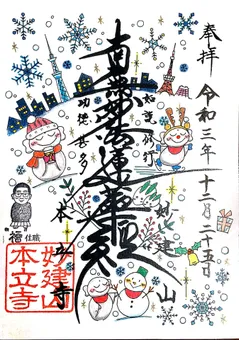 奉拝
令和三年十二月二十五日
如説修行
妙建山
南無妙法蓮華経
功徳甚多
本立寺
住職
妙建山
本立寺